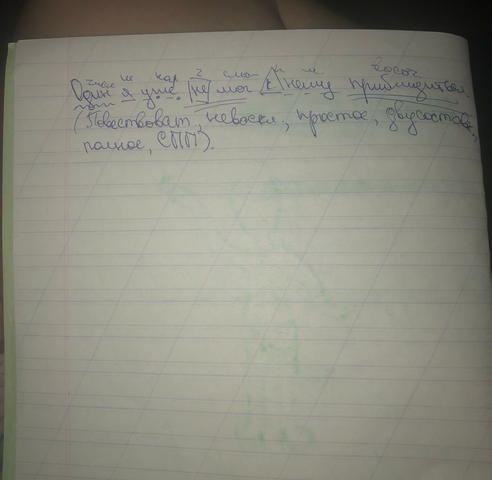 числ. м. нар. ч. глаг. п. м. глагол
Один я уже не мог к нему приблизится.
(Повествоват., невоскл., простое, двусостав.,
полное, СПП).